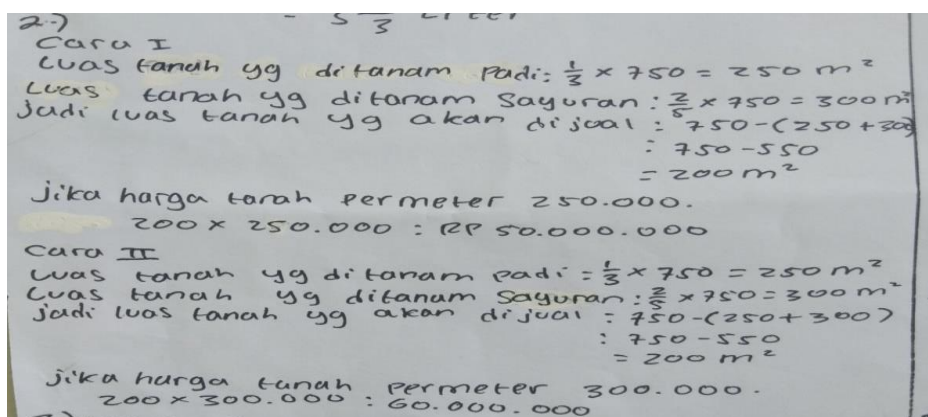 2.)
Cara I
Luas tanah yg ditanam Padi: 1/3 × 750 = 250 m²
Luas tanah yg ditanam Sayuran : 2/5 × 750 = 300 m²
Jadi luas tanah yg akan dijual : 750-(250+300)
: 750-550
= 200 m²
Jika harga tanah permeter 250.000.
200 × 250.000 : RP 50.000.000
Cara II
Luas tanah yg ditanam padi = 1/3 × 750 = 250 m²
Luas tanah yg ditanam Sayuran : 2/5 × 750 = 300 m²
jadi luas tanah yg akan dijual = 750-(250+300)
: 750-550
= 200 m²
Jika harga tanah permeter 300.000.
200 × 300.000 : 60.000.000